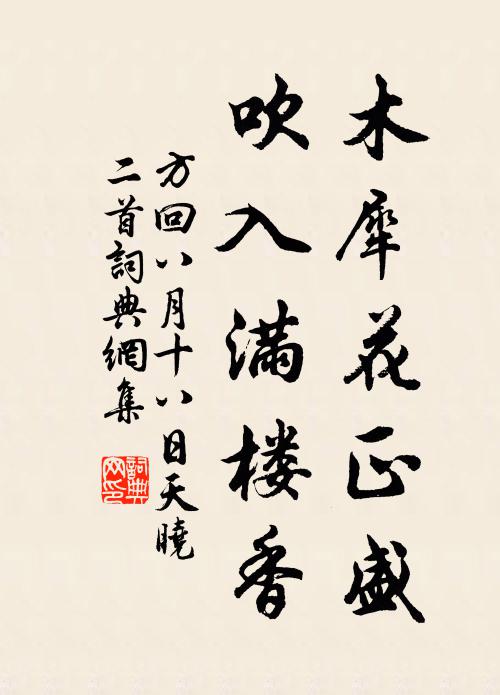 木犀花正盛
吹入满楼香
方回八月十八日天曉
二首詞典網集
詞典
网印